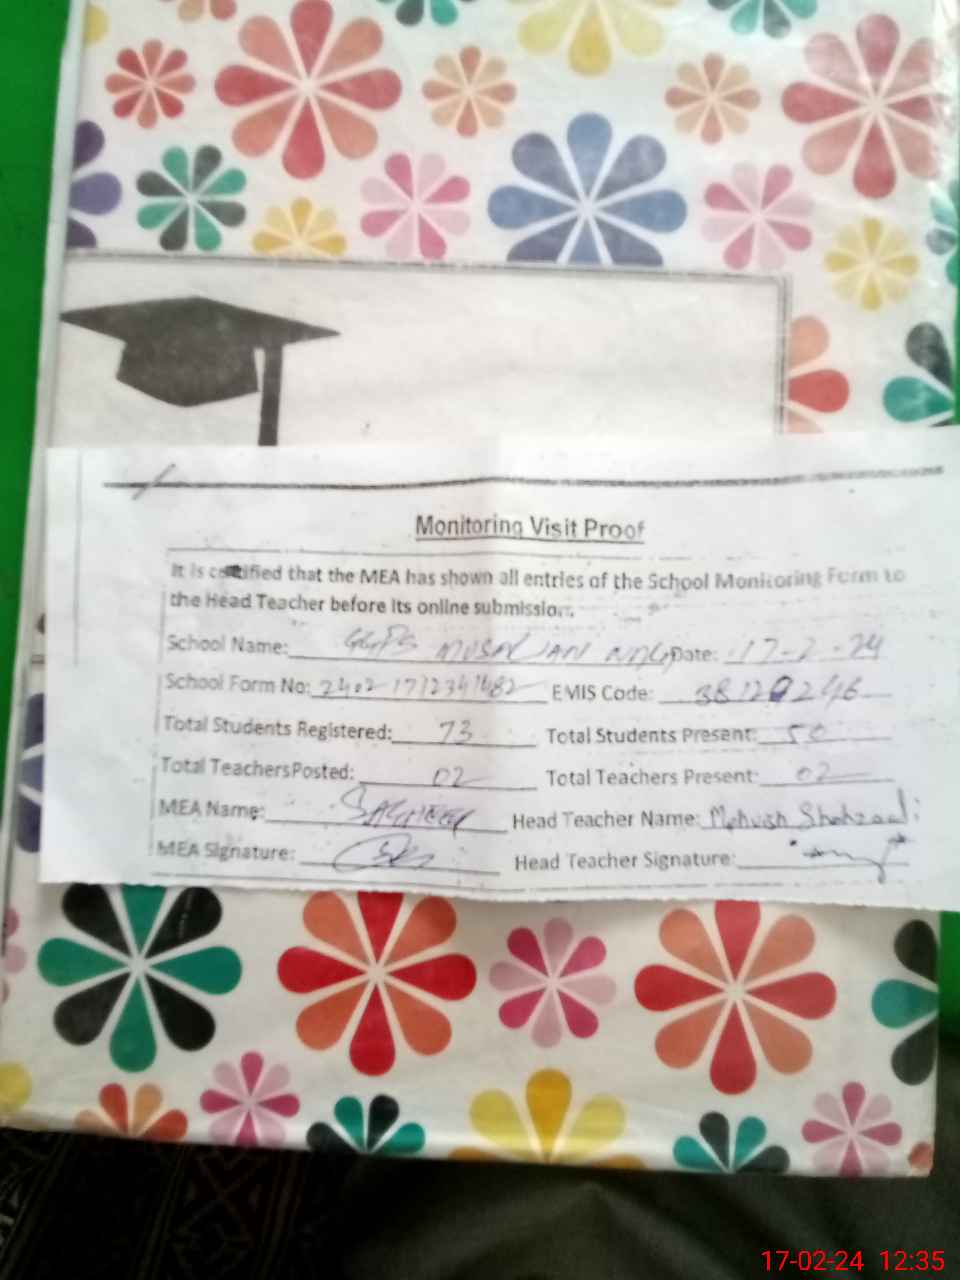 Monitoring Visit Proof
It is certified that the MEA has shown all entries of the School Monitoring Form to
the Head Teacher before its online submission.
School Name: GGPS Date: 17-2-24
School Form No: 2402-1712341482 EMIS Code: 38120246
Total Students Registered: 73 Total Students Present: 50
Total Teachers Posted: 02 Total Teachers Present: 02
MEA Name: Head Teacher Name: Mehvish Shahzadi
MEA Signature: Head Teacher Signature:
17-02-24 12:35